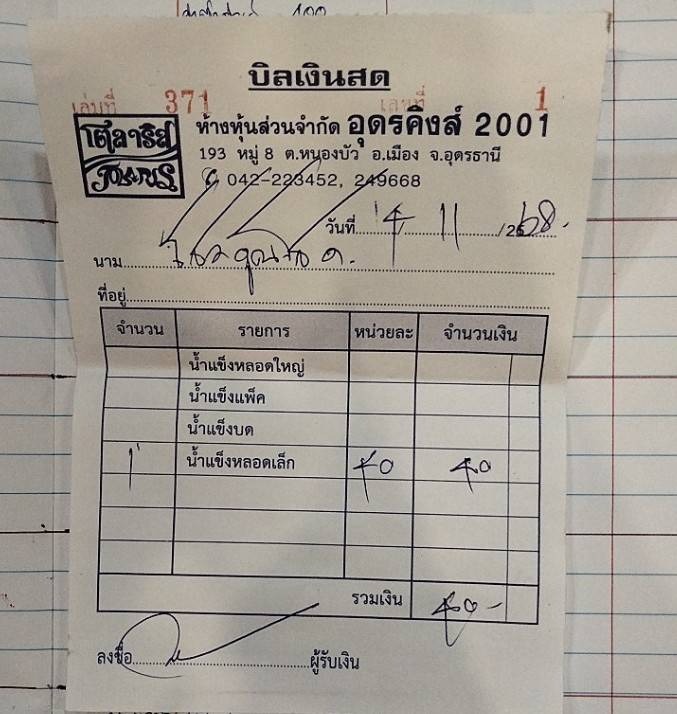 บิลเงินสด
เล่มที่ 371 เลขที่ 1
โพลาริส
ห้างหุ้นส่วนจำกัด อุดรคิงส์ 2001
193 หมู่ 8 ต.หนองบัว อ.เมือง จ.อุดรธานี
042-223452, 249668
วันที่ 4 11 / 2568.
นาม
ที่อยู่
จำนวน รายการ หน่วยละ จำนวนเงิน
น้ำแข็งหลอดใหญ่
น้ำแข็งแพ็ค
น้ำแข็งบด
1 น้ำแข็งหลอดเล็ก 40 40
รวมเงิน 40-
ลงชื่อ ผู้รับเงิน